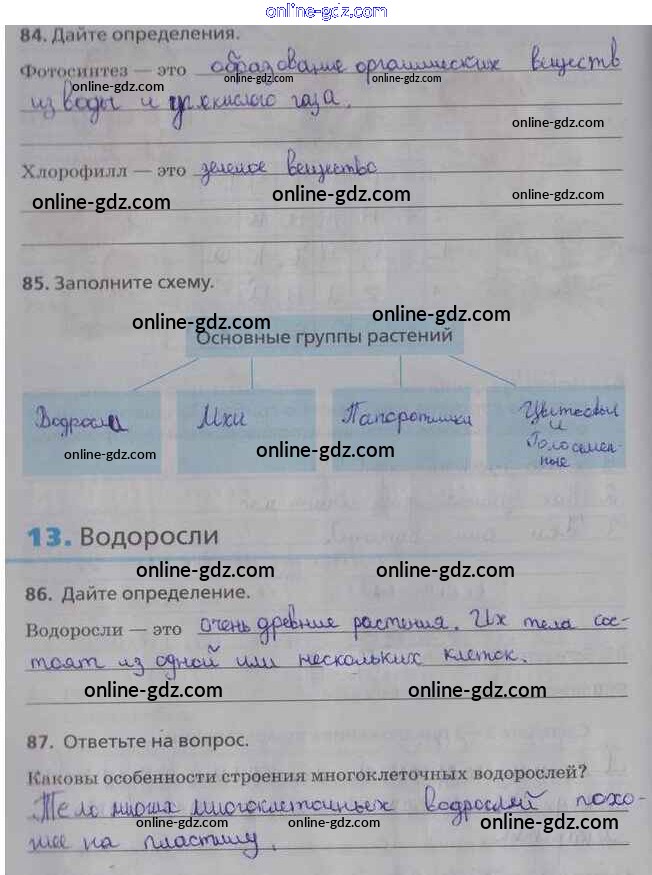 online-gdz.com
84. Дайте определения.
Фотосинтез — это образование органических веществ
online-gdz.com online-gdz.com
из воды и углекислого газа.
online-gdz.com
Хлорофилл — это зеленое вещество
online-gdz.com online-gdz.com online-gdz.com
85. Заполните схему.
online-gdz.com online-gdz.com
Основные группы растений
Водоросли Мхи Папоротники Цветковые и Голосемен-ные
online-gdz.com online-gdz.com online-gdz.com
13. Водоросли
online-gdz.com online-gdz.com
86. Дайте определение.
Водоросли — это очень древние растения. Их тела сос-
тоят из одной или нескольких клеток.
online-gdz.com online-gdz.com
87. Ответьте на вопрос.
Каковы особенности строения многоклеточных водорослей?
Тело многоклеточных водрослей похо-
же на пластину.
online-gdz.com online-gdz.com online-gdz.com